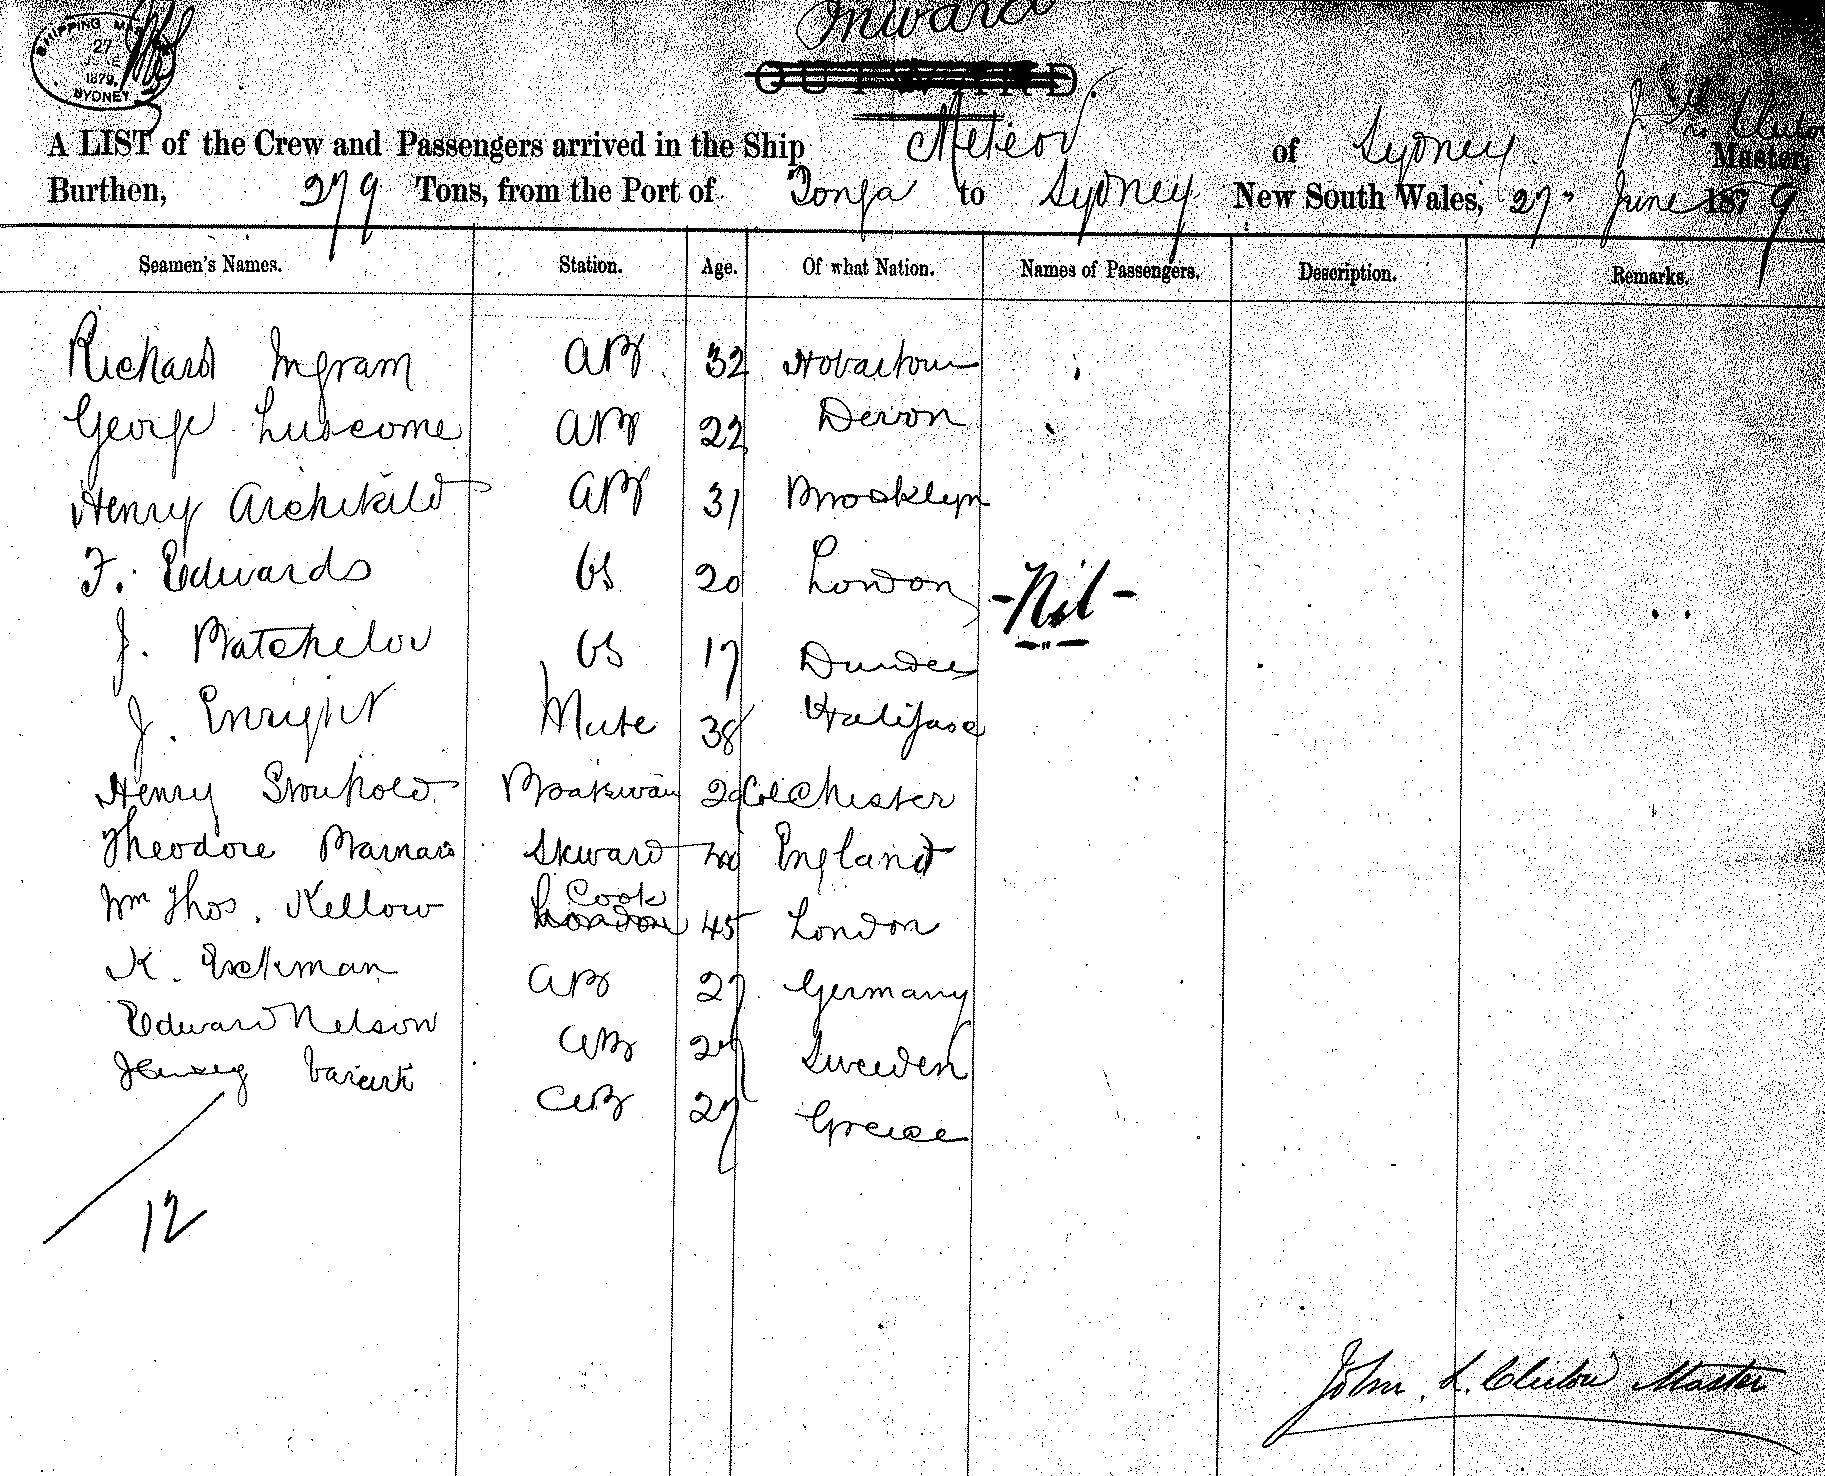 Inward
SHIPPING MAS
27
1879
SYDNEY
OUTWARD.
A LIST of the Crew and Passengers arrived in the Ship Meteor of Sydney Master,
Burthen, 279 Tons, from the Port of Tonga to Sydney New South Wales, 27" June 1879
Seamen's Names. Station. Age. Of what Nation. Names of Passengers. Description. Remarks.
Richard Ingram AB 32 Hobartown
George Luscome AB 22 Devon
Henry Archibald AB 31 Brooklyn
F. Edwards OS 20 London
- Nil -
J. Batchelor OS 17 Dundee
J. Enright Mate 38 Halifax
Henry Boatswain Colchester
Theodore Barnar Steward 40 England
Wm Thos. Kellow Cook London 45 London
K. Eckman AB 27 Germany
Edward Nelson AB Sweden
AB 27 Greece
12
John. L. Master